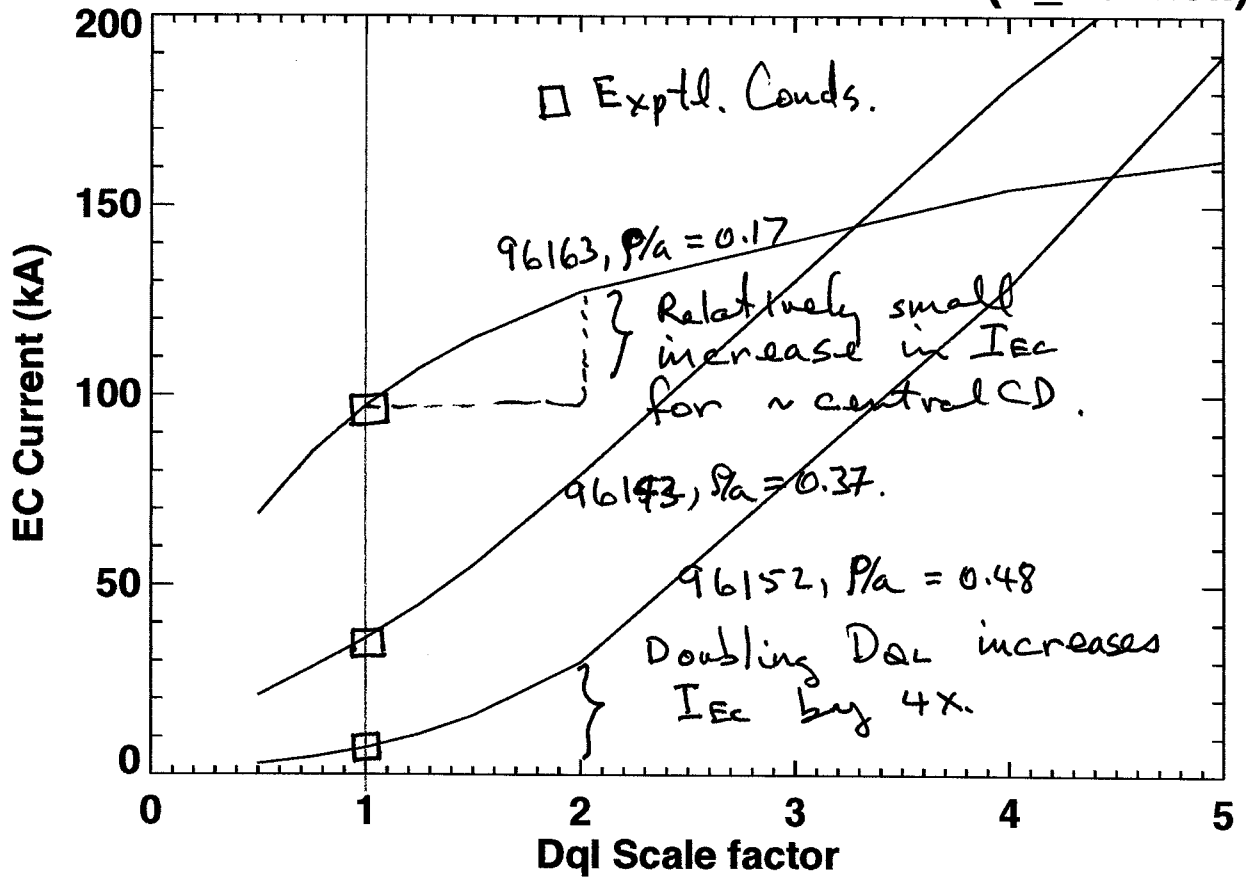 200
150
100
50
0
EC Current (kA)
□ Exptl. Conds.
96163, ρ/a = 0.17
Relatively small
increase in IEC
for ~ central CD.
ρ/a = 0.37.
96152, ρ/a = 0.48
Doubling DQL increases
IEC by 4x.
0 1 2 3 4 5
Dql Scale factor